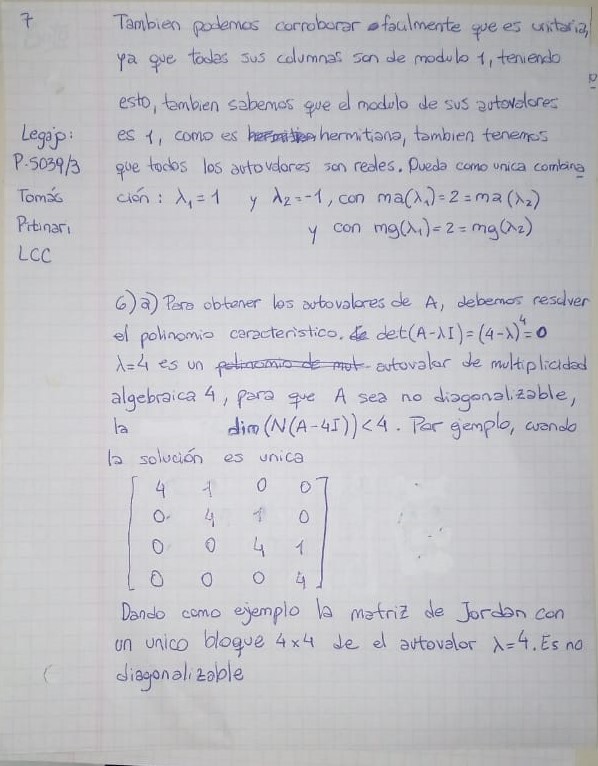 7
Tambien podemos corroborar facilmente que es unitaria,
ya que todas sus columnas son de modulo 1, teniendo
esto, tambien sabemos que el modulo de sus autovalores
es 1, como es hermitiana, tambien tenemos
que todos los autovalores son reales. Queda como unica combina
ción: λ₁=1 y λ₂=-1, con ma(λ₁)=2=ma(λ₂)
y con mg(λ₁)=2=mg(λ₂)
Legajo:
P-5039/3
Tomás
Pitinari
LCC
6) a) Para obtener los autovalores de A, debemos resolver
el polinomio caracteristico. det(A-λI)=(4-λ)⁴=0
λ=4 es un autovalor de multiplicidad
algebraica 4, para que A sea no diagonalizable,
la dim(N(A-4I))<4. Por ejemplo, cuando
la solución es unica
4 1 0 0
0 4 1 0
0 0 4 1
0 0 0 4
Dando como ejemplo la matriz de Jordan con
un unico bloque 4x4 de el autovalor λ=4. Es no
diagonalizable